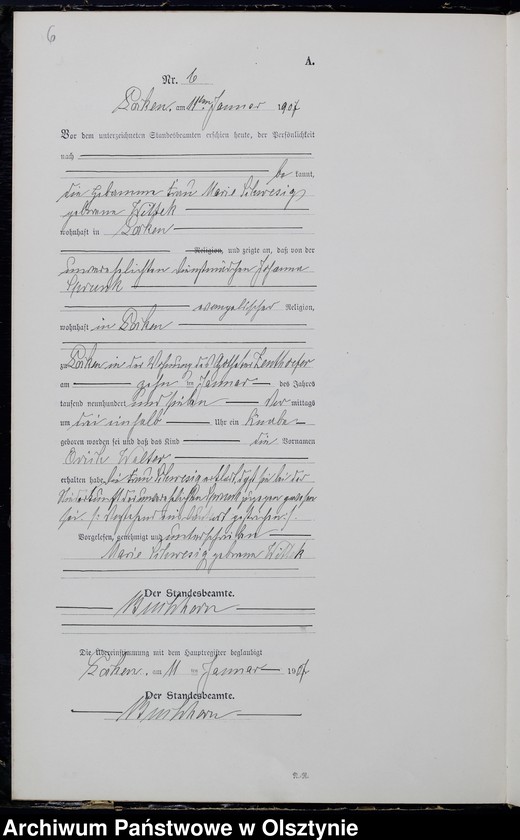 6
A.
Nr. 6
am 11ten Januar 1907
Vor dem unterzeichneten Standesbeamten erschien heute, der Persönlichkeit
nach
be kannt,
die Hebamme Frau Marie Schwesig
geborene Wittek
wohnhaft in
Religion, und zeigte an, daß von der
unverehelichten Dienstmädchen Johanna
evangelischer Religion,
wohnhaft in
zu in der Wohnung des
am zehn ten Januar des Jahres
tausend neunhundert und sieben Vor mittags
um drei einhalb Uhr ein Knabe
geboren worden sei und daß das Kind die Vornamen
Erich Walter
erhalten habe, die Frau Schwesig erklärt, daß sie bei der
Niederkunft der zugegen gewesen
sei.
Vorgelesen, genehmigt und unterschrieben
Marie Schwesig geborene Wittek
Der Standesbeamte.
Die Übereinstimmung mit dem Hauptregister beglaubigt
am 11 ten Januar 1907
Der Standesbeamte.
Archiwum Państwowe w Olsztynie